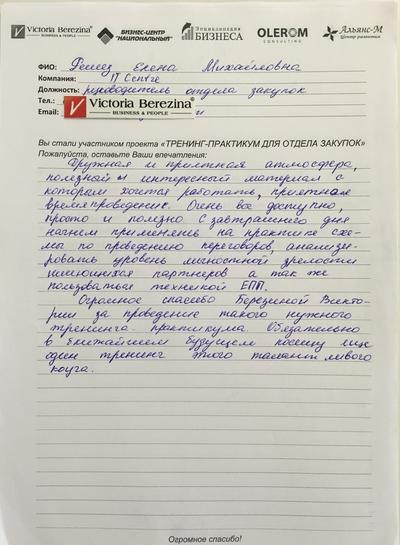 Victoria Berezina
BUSINESS & PEOPLE
БИЗНЕС-ЦЕНТР
"НАЦИОНАЛЬНЫЙ"
Энциклопедия
БИЗНЕСА
OLEROM
CONSULTING
Альянс-М
Центр развития
ФИО: Елена Михайловна
Компания: IT Centre
Должность: руководитель отдела закупок
Тел.:
Email:
Victoria Berezina
BUSINESS & PEOPLE
Вы стали участником проекта «ТРЕНИНГ-ПРАКТИКУМ ДЛЯ ОТДЕЛА ЗАКУПОК»
Пожалуйста, оставьте Ваши впечатления:
Дружная и приятная атмосфера,
полезный и интересный материал с
которым хочется работать, приятное
время проведение. Очень все доступно,
просто и полезно С завтрашнего дня
начнем применять на практике схе-
мы по проведению переговоров, анализи-
ровать уровень личностной зрелости
имеющихся партнеров а так же
пользоваться техникой ЕПП.
Огромное спасибо Березиной Викто-
рии за проведение такого нужного
тренинга практикума. Обязательно
в ближайшем будущем посещу еще
один тренинг этого талантливого
коуча.
Огромное спасибо!